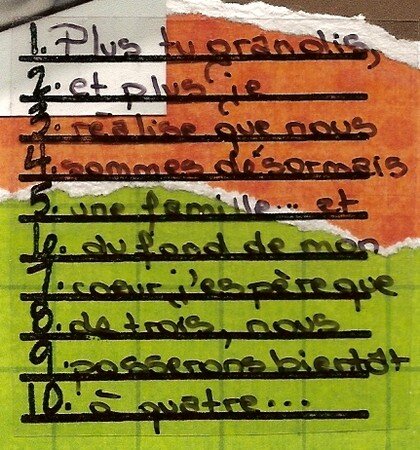 1. Plus tu grandis,
2. et plus je
3. réalise que nous
4. sommes désormais
5. une famille... et
6. du fond de mon
7. coeur j'espère que
8. de trois, nous
9. passerons bientôt
10. à quatre...